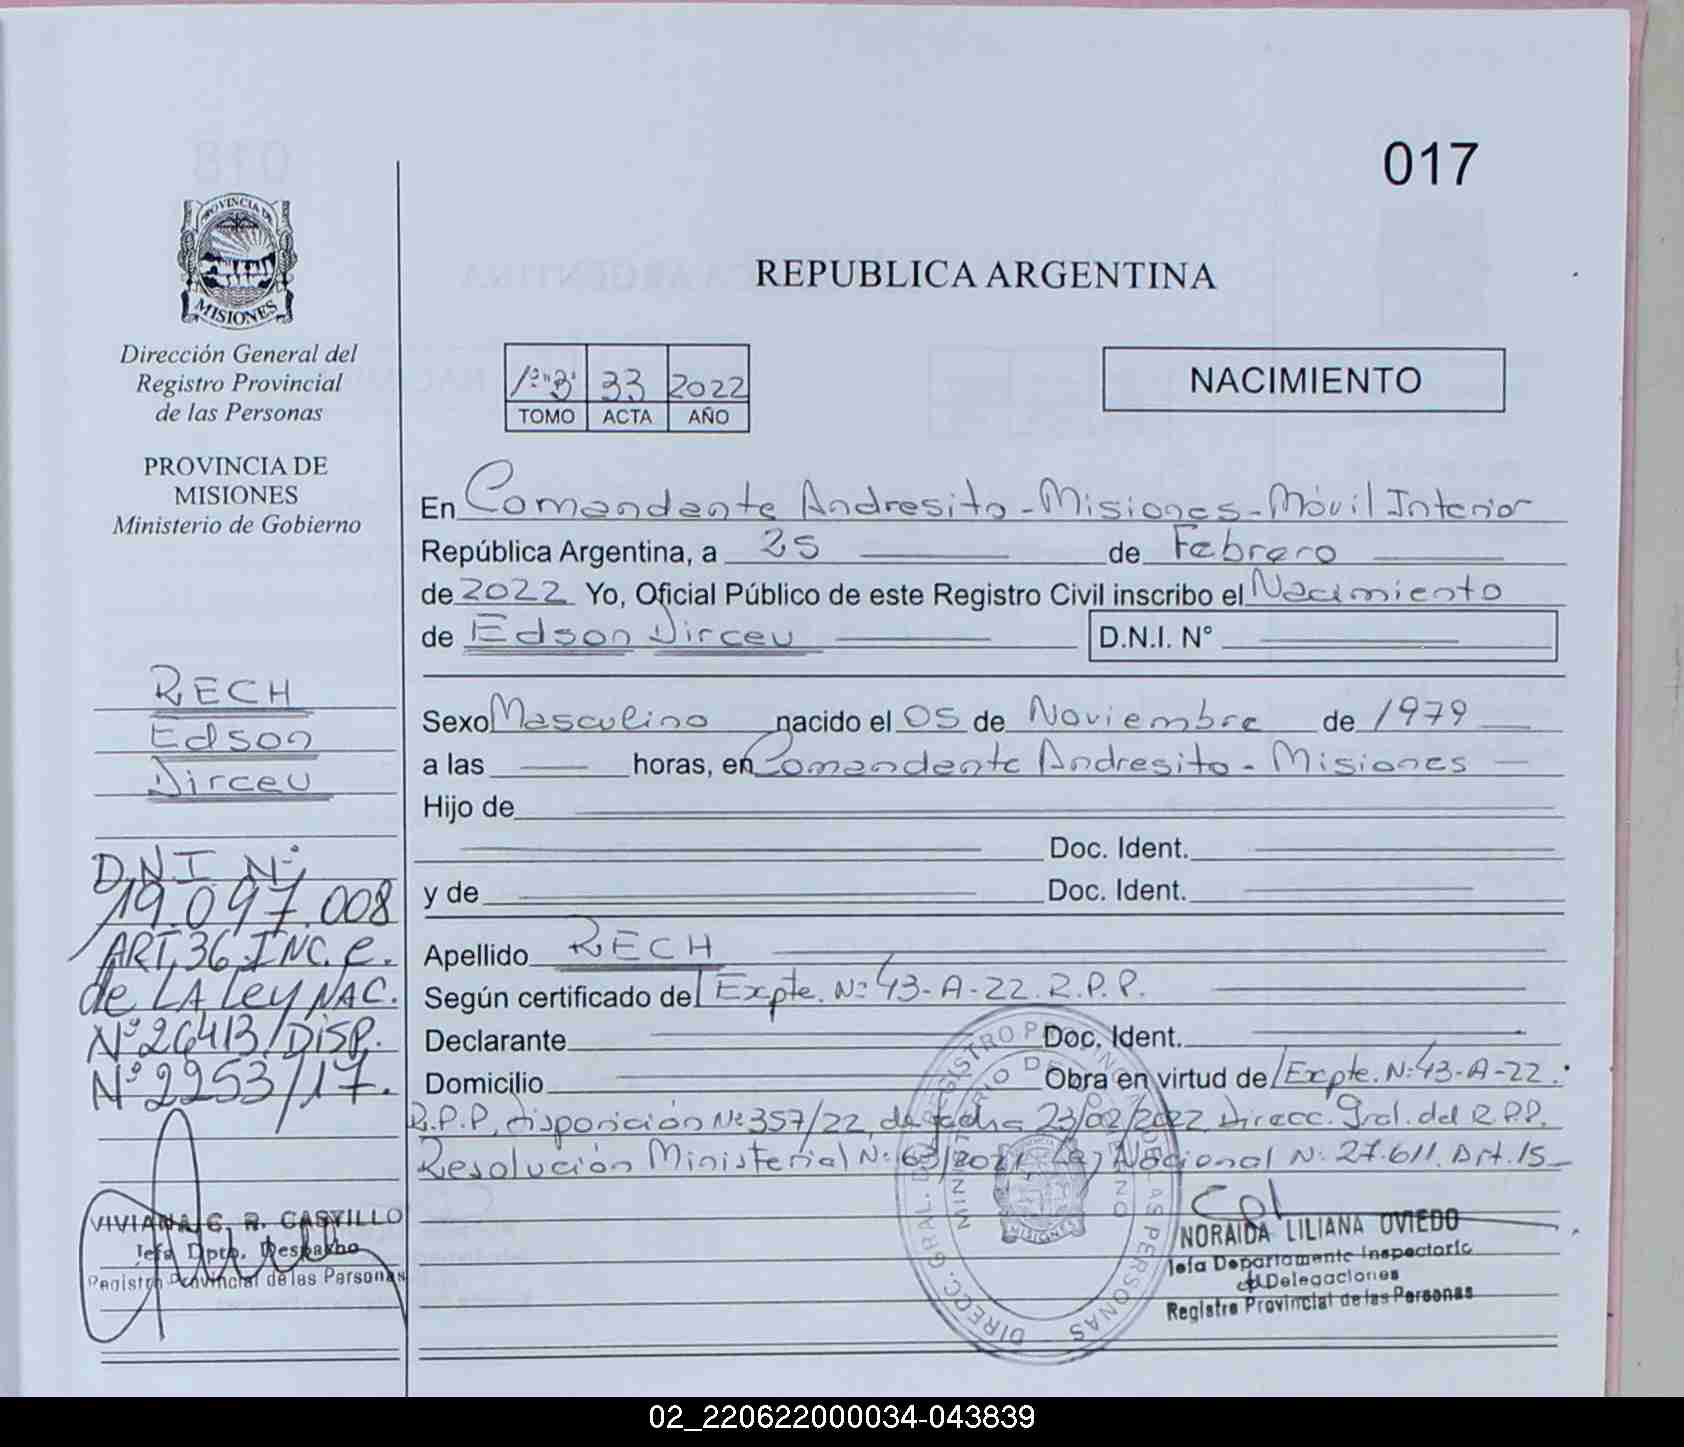 017
PROVINCIA DE
MISIONES
Dirección General del
Registro Provincial
de las Personas
PROVINCIA DE
MISIONES
Ministerio de Gobierno
REPUBLICA ARGENTINA
1º "B" 33 2022
TOMO ACTA AÑO
NACIMIENTO
En Comandante Andresito - Misiones - Móvil Interior
República Argentina, a 25 de Febrero
de 2022 Yo, Oficial Público de este Registro Civil inscribo el Nacimiento
de Edson Dirceu D.N.I. N°
Sexo Masculino nacido el 05 de Noviembre de 1979
a las horas, en Comandante Andresito - Misiones
Hijo de
Doc. Ident.
y de Doc. Ident.
Apellido RECH
Según certificado del Expte. Nº 43-A-22 R.P.P.
Declarante Doc. Ident.
Domicilio Obra en virtud de Expte. N: 43-A-22.
R.P.P. disposición Nº 357/22, de fecha 23/02/2022 Direcc. Gral. del R.P.P.
Resolución Ministerial N: 63/2021 Ley Nacional N: 27.611 Art. 15
RECH
Edson
Dirceu
D.N.I Nº
19.097.008
ART. 36 INC. e.
de LA Ley NAC.
Nº 26413/DISP.
Nº 2253/17.
VIVIANA C. R. CASTILLO
Jefa Dpto. Despacho
Registro Provincial de las Personas
NORAIDA LILIANA OVIEDO
Jefa Departamento Inspectoría
d Delegaciones
Registro Provincial de las Personas
DIRECC. GRAL. DEL REGISTRO PROVINCIAL DE LAS PERSONAS
MISIONES
02_220622000034-043839